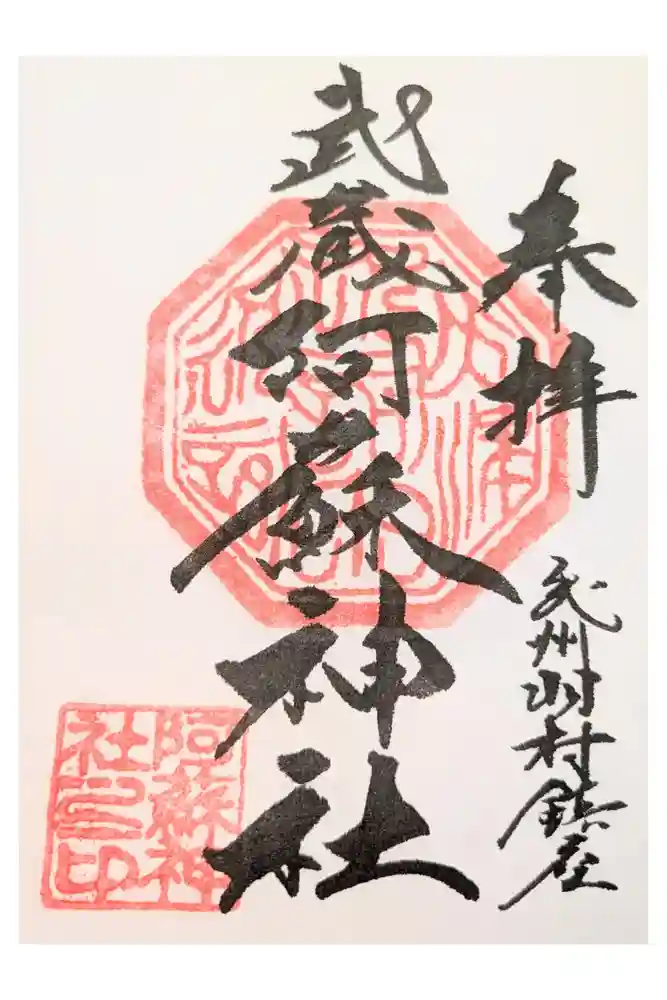 奉拝
武州羽村鎮座
武蔵阿蘇神社
阿蘇神
社之印